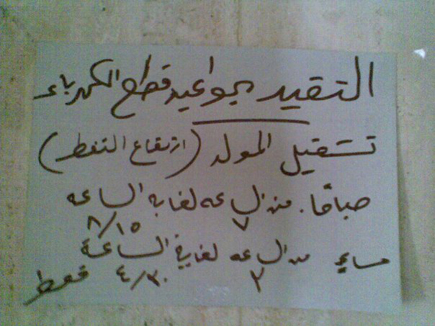 التقيد بمواعيد قطع الكهرباء
تشغيل المولد (ارتفاع النفط)
صباحًا. من الساعه ٧ لغاية الساعه ٨/١٥
مساءً من الساعه ٣ لغاية الساعة ٤/٣٠ فقط